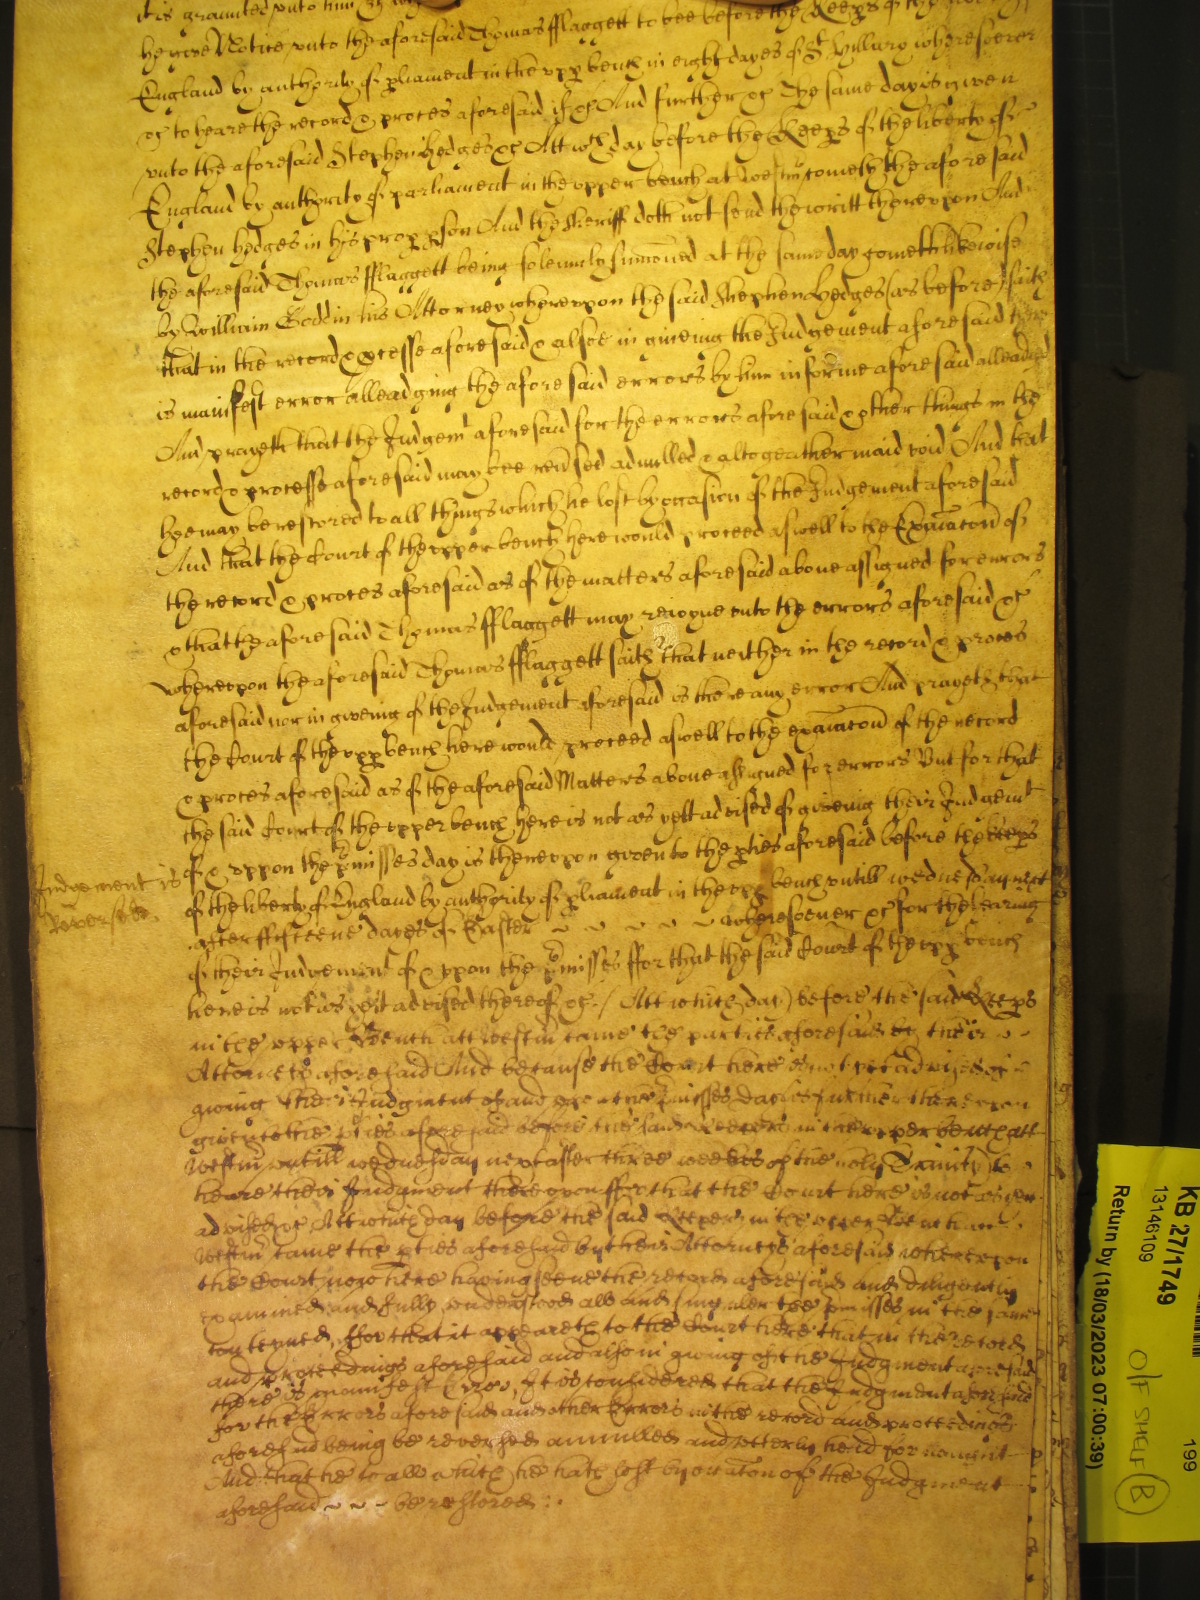 it is graunted vnto him
he give Notice vnto the aforesaid Thomas fflaggett to bee before the Keeps of the
England by authority of pliament in the vpp bench in eight dayes of St hillary wheresoever
&c to heare the record & proces aforesaid if &c And further &c The same day is given
vnto the aforesaid Stephen Hedges &c Att wch day before the Keeps of the liberty of
England by authority of parliament in the vpper bench at Westmr cometh the aforesaid
Stephen Hedges in his prop pson And the sheriff doth not send the writt therevpon And
the aforesaid Thomas fflaggett being solemnly sumoned at the same day cometh likewise
by William Goddin his Attorney wherevpon the said Stephen Hedges (as before) saith
that in the record & pcesse aforesaid & alsoe in giveing the Judgement aforesaid there
is manifest error alleadging the aforesaid errors by him in forme aforesaid alleadged
And prayeth that the Judgemt aforesaid for the errors aforesaid & other things in the
record & processe aforesaid may bee revsed adnulled & altogeather maid void And that
hee may be restored to all things which he lost by occasion of the Judgement aforesaid
And that the Court of the vpper bench here would proceed aswell to the Exaiacon of
the record & proces aforesaid as of the matters aforesaid above assigned for errors
& that the aforesaid Thomas fflaggett may reioyne vnto the errors aforesaid &c
wherevpon the aforesaid Thomas fflaggett saith that neither in the record & proces
aforesaid nor in giveing of the Judgement aforesaid is there any error And prayeth that
the Court of the vpp bench here would proceed aswell to the exaiacon of the record
& proces aforesaid as of the aforesaid Matters above assigned for errors But for that
the said Court of the vpper bench here is not as yett advised of giveing their Judgemt
of & vppon the pmisses day is therevpon given to the pties aforesaid before the keeps
Judgement is
Reversed
of the liberty of England by authority of pliament in the vpp bench vntill wednesday next
after ffifteene dayes of Easter wheresoever &c for the hearing
of their Judgement of & vppon the pmisses ffor that the said Court of the vpp bench
here is not as yet advised thereof &c / Att which day before the said Keeps
in the upper Bench att Westm came the parties aforesaid by their
Attorneys aforesaid And because the Court here is not yet advised of
giving their Judgment of and upon the pmisses day is further thereupon
given to the pties aforesaid before the said Keepers in the upper bench att
Westm untill wednesday next after three weekes of the holy Trinity to
heare their Judgment thereupon ffor that the Court here is not as yet
advised &c Att which day before the said Keepers in the upper Bench att
Westm came the pties aforesaid by their Attorneys aforesaid whereupon
the Court now here having seene the record aforesaid and diligently
examined and fully understood all and singuler the pmisses in the same
conteyned, ffor that it appeareth to the Court here that in the record
and proceedings aforesaid and also in giving of the Judgment aforesaid
there is manifest Error, It is considered that the Judgment aforesaid
for the Errors aforesaid and other Errors in the record and proceedings
aforesaid being be reversed annulled and utterly held for nought
And that he to all which he hath lost by occacon of the Judgment
aforesaid be restored
KB 27/1749
13146109
Return by (18/03/2023 07:00:39)
199
O/F SHELF B